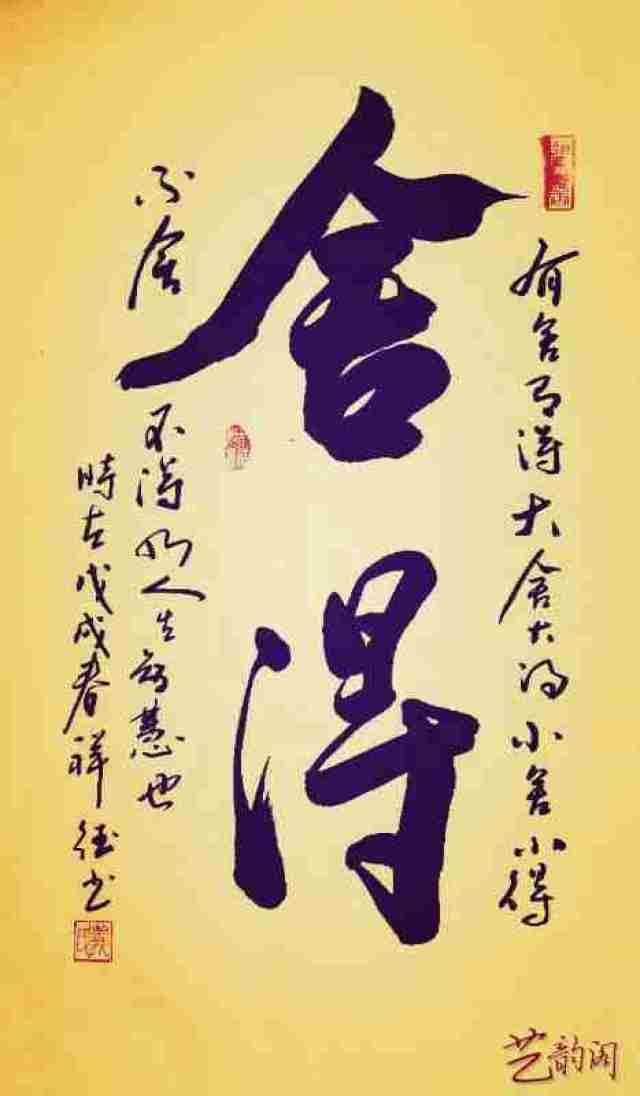 有舍有得大舍大得小舍小得
舍得
不舍
不得乃人生智慧也
時在戊戌春祥德书
艺韵阁